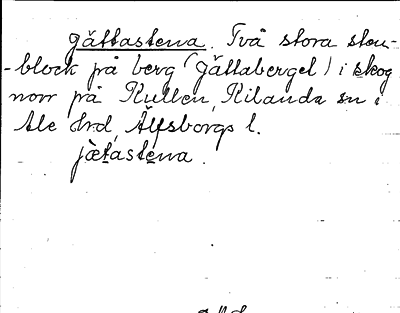 gättastena. Två stora sten-
-block på berg (gättaberget) i skog
norr på Kullen, Kilanda sn i
Ale hrd, Älfsborgs l.
jætastena.